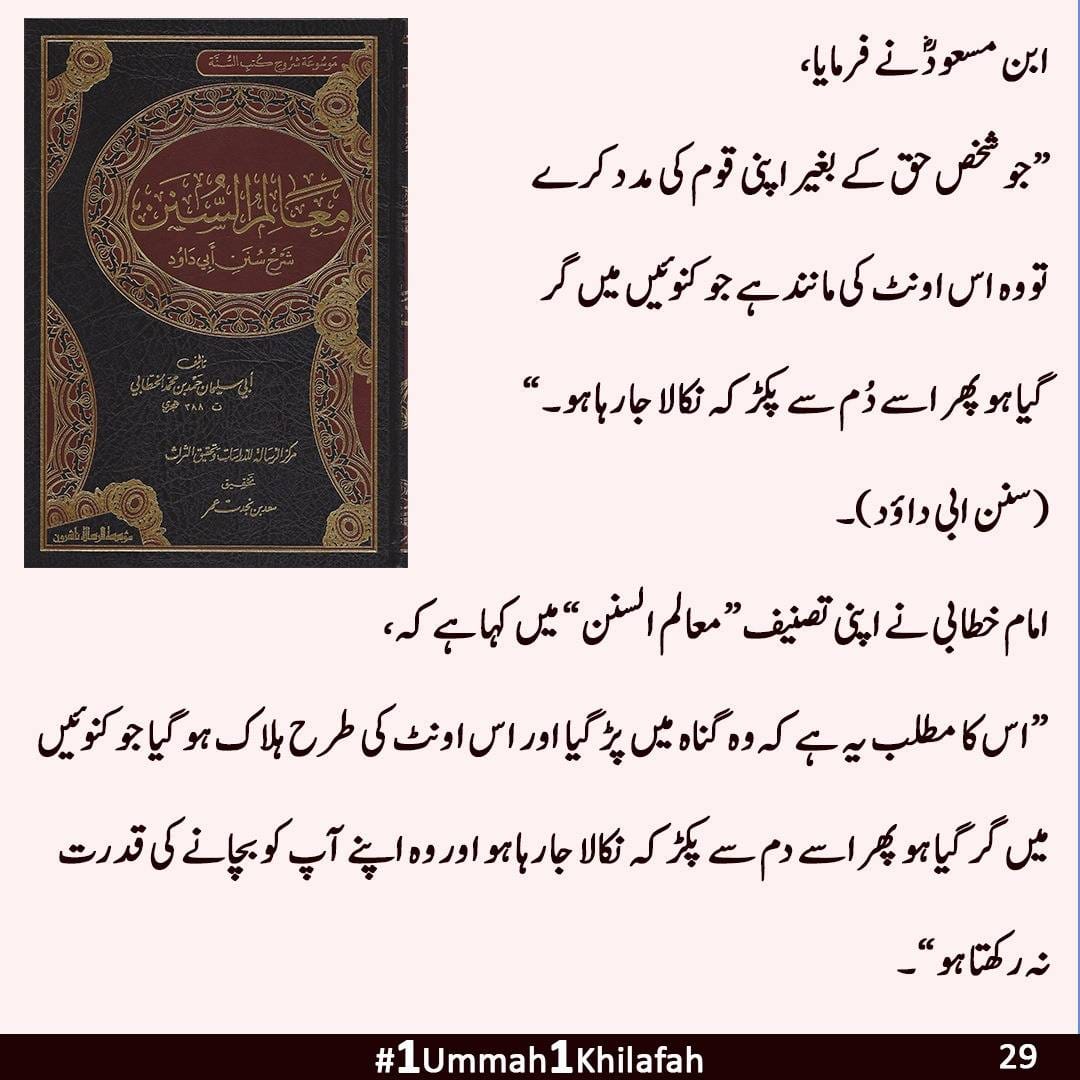 ابن مسعودؓ نے فرمایا،
”جو شخص حق کے بغیر اپنی قوم کی مدد کرے
تو وہ اس اونٹ کی مانند ہے جو کنوئیں میں گر
گیا ہو پھر اسے دُم سے پکڑ کہ نکالا جا رہا ہو۔“
(سنن ابی داؤد)۔
امام خطابی نے اپنی تصنیف ”معالم السنن“ میں کہا ہے کہ،
”اس کا مطلب یہ ہے کہ وہ گناہ میں پڑ گیا اور اس اونٹ کی طرح ہلاک ہو گیا جو کنوئیں
میں گر گیا ہو پھر اسے دم سے پکڑ کہ نکالا جا رہا ہو اور وہ اپنے آپ کو بچانے کی قدرت
نہ رکھتا ہو“۔
موسوعة شروح كتب السنة
معالم السنن
شرح سنن أبي داود
تأليف
أبي سليمان حمد بن محمد الخطابي
ت ٣٨٨ هجري
مركز الرسالة للدراسات وتحقيق التراث
تحقيق
سعد بن نجدت عمر
مؤسسة الرسالة ناشرون
#1Ummah1Khilafah
29